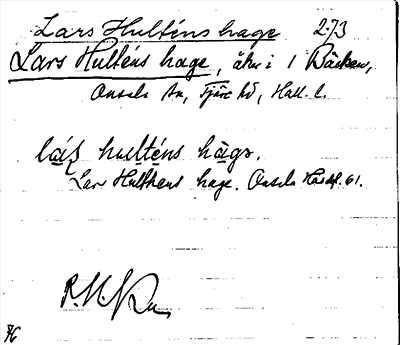 Lars Hulténs hage 273
Lars Hulténs hage, åker i 1 Bäcken,
Onsala sn, Fjäre hd, Hall. l.
lás hulténs hāgə.
Lars Hulthens hage. Onsala